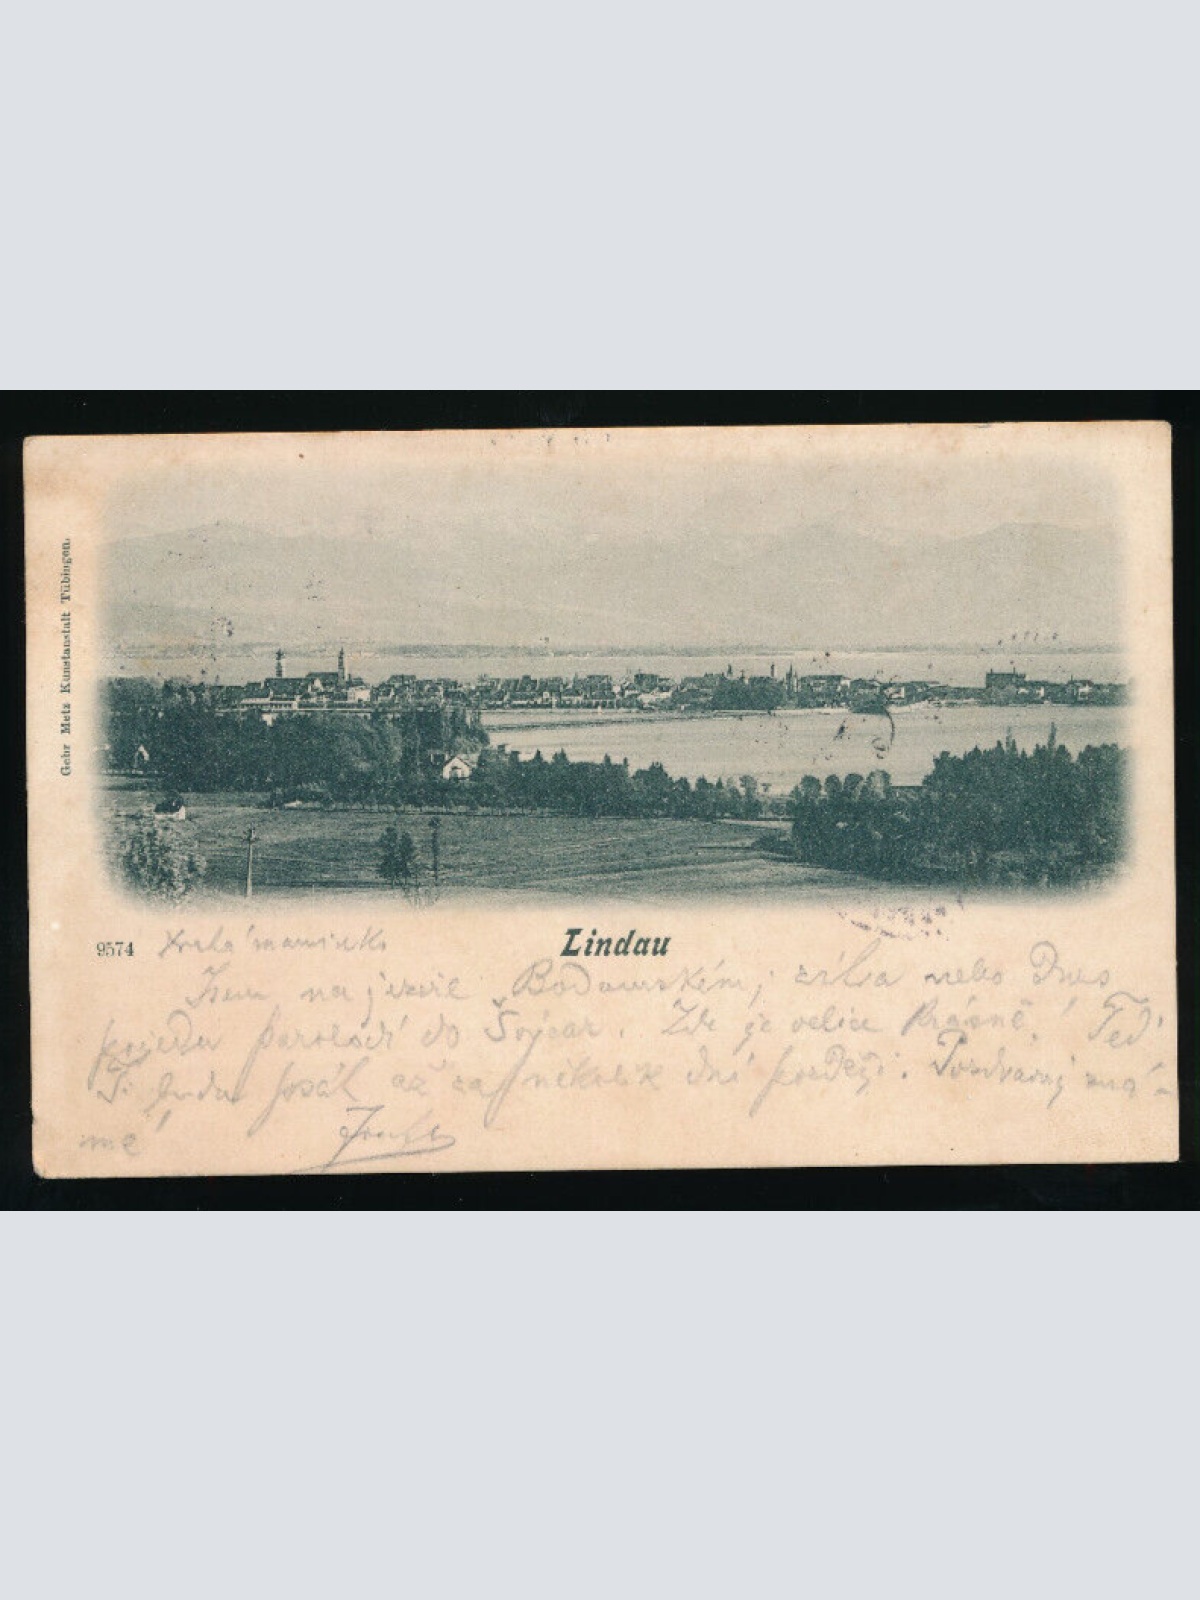 Gebr Metz Kunstanstalt Tübingen.
9574
Lindau
Drahá maminko
Jsem na jezeře Bodamském, zítra nebo dnes
pojedu parolodí do Švýcar. Zde je velice krásně! Teď
Ti budu psát až za několik dní později. Pozdravuj zná-
mé